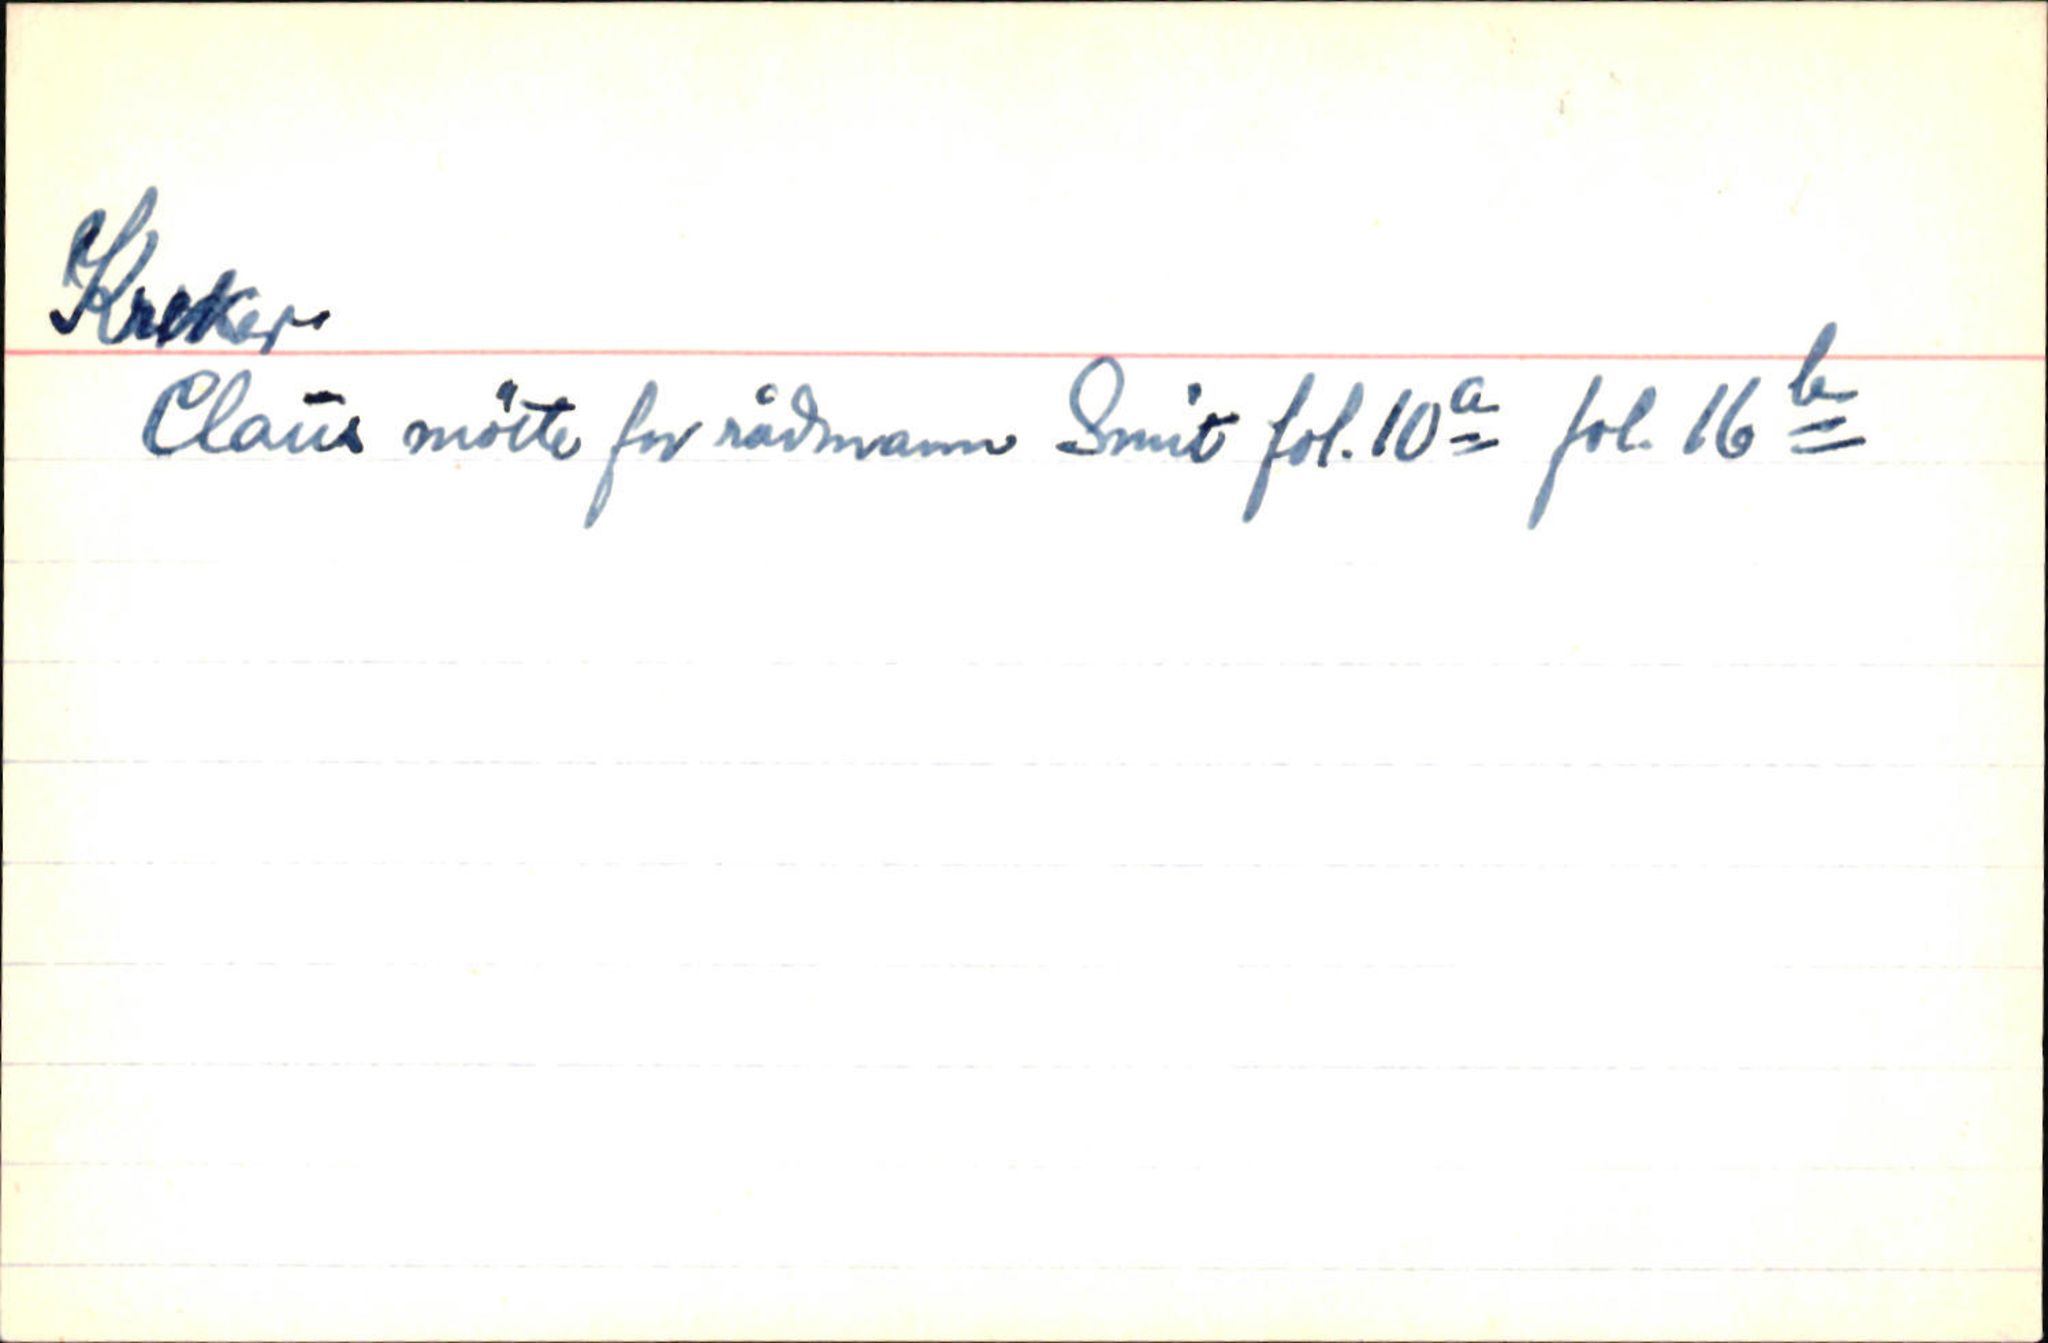 Kreker.
Claus mötte for rådmann Smit fol. 10a fol. 16b